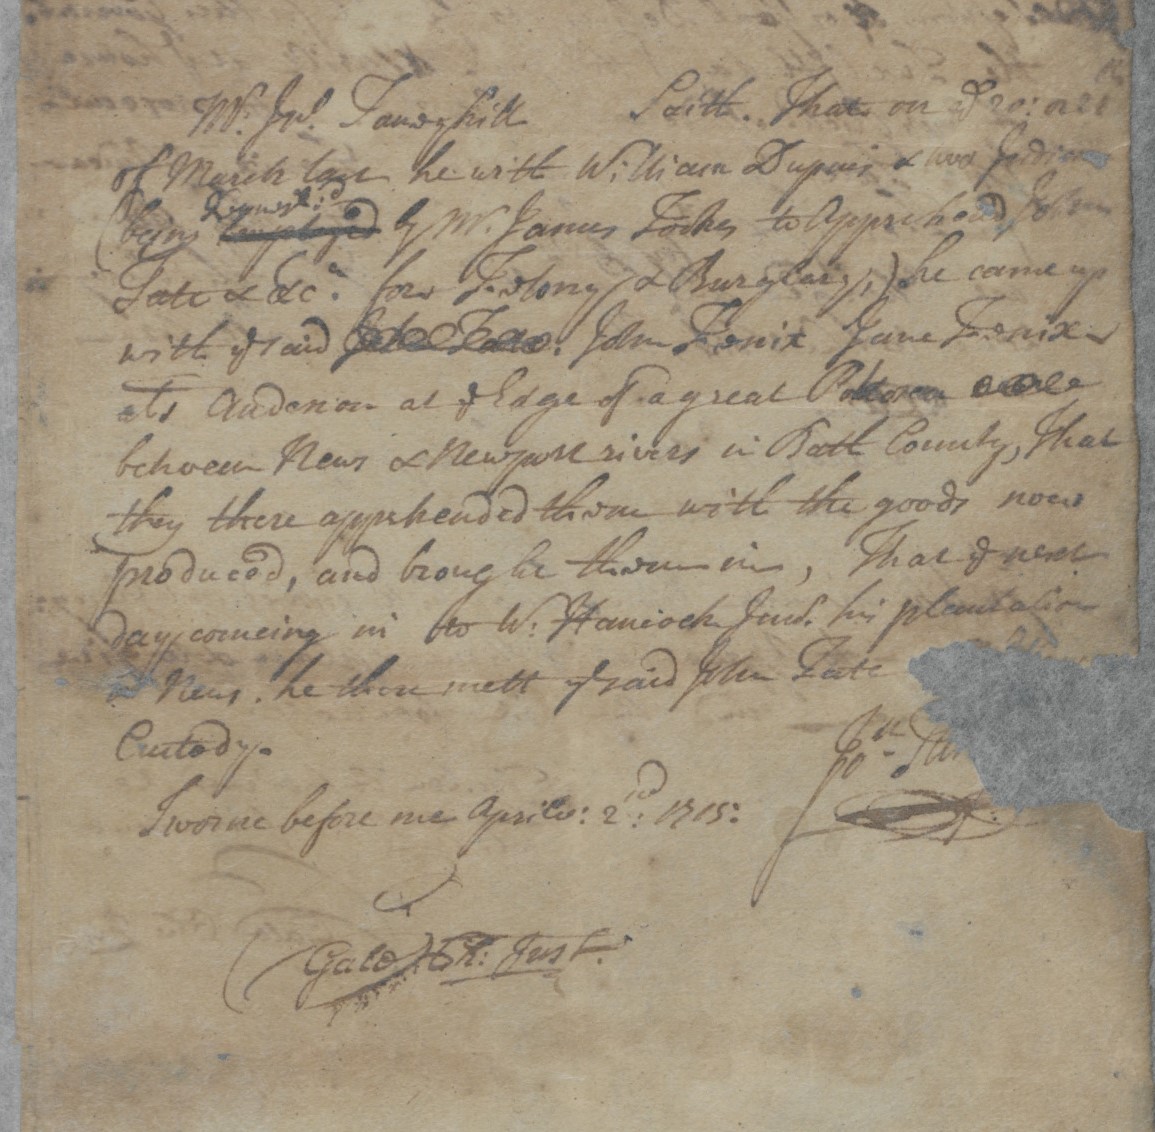 Mr. Jos. Tanneyhill Saith. That on ye 20: or 21
of March last he with William Dupuis & two Indians
(being Required by Mr. James Fookes to Apprehend John
Tate & &c. for Felony & Burglary,) he came up
with ye said John Fenix Jane Fenix
als Anderson at ye Edge of a great Pokoson
between News & Newport rivers in Bath County, That
they there apprehended them with the goods now
produced, and brought them in, That ye next
day comeing in to W: Hancock Junr. his plantation
News. he then mett ye said John Tate
Custody.
Jos.
Sworne before me Aprill: 2nd: 1715:
Just.